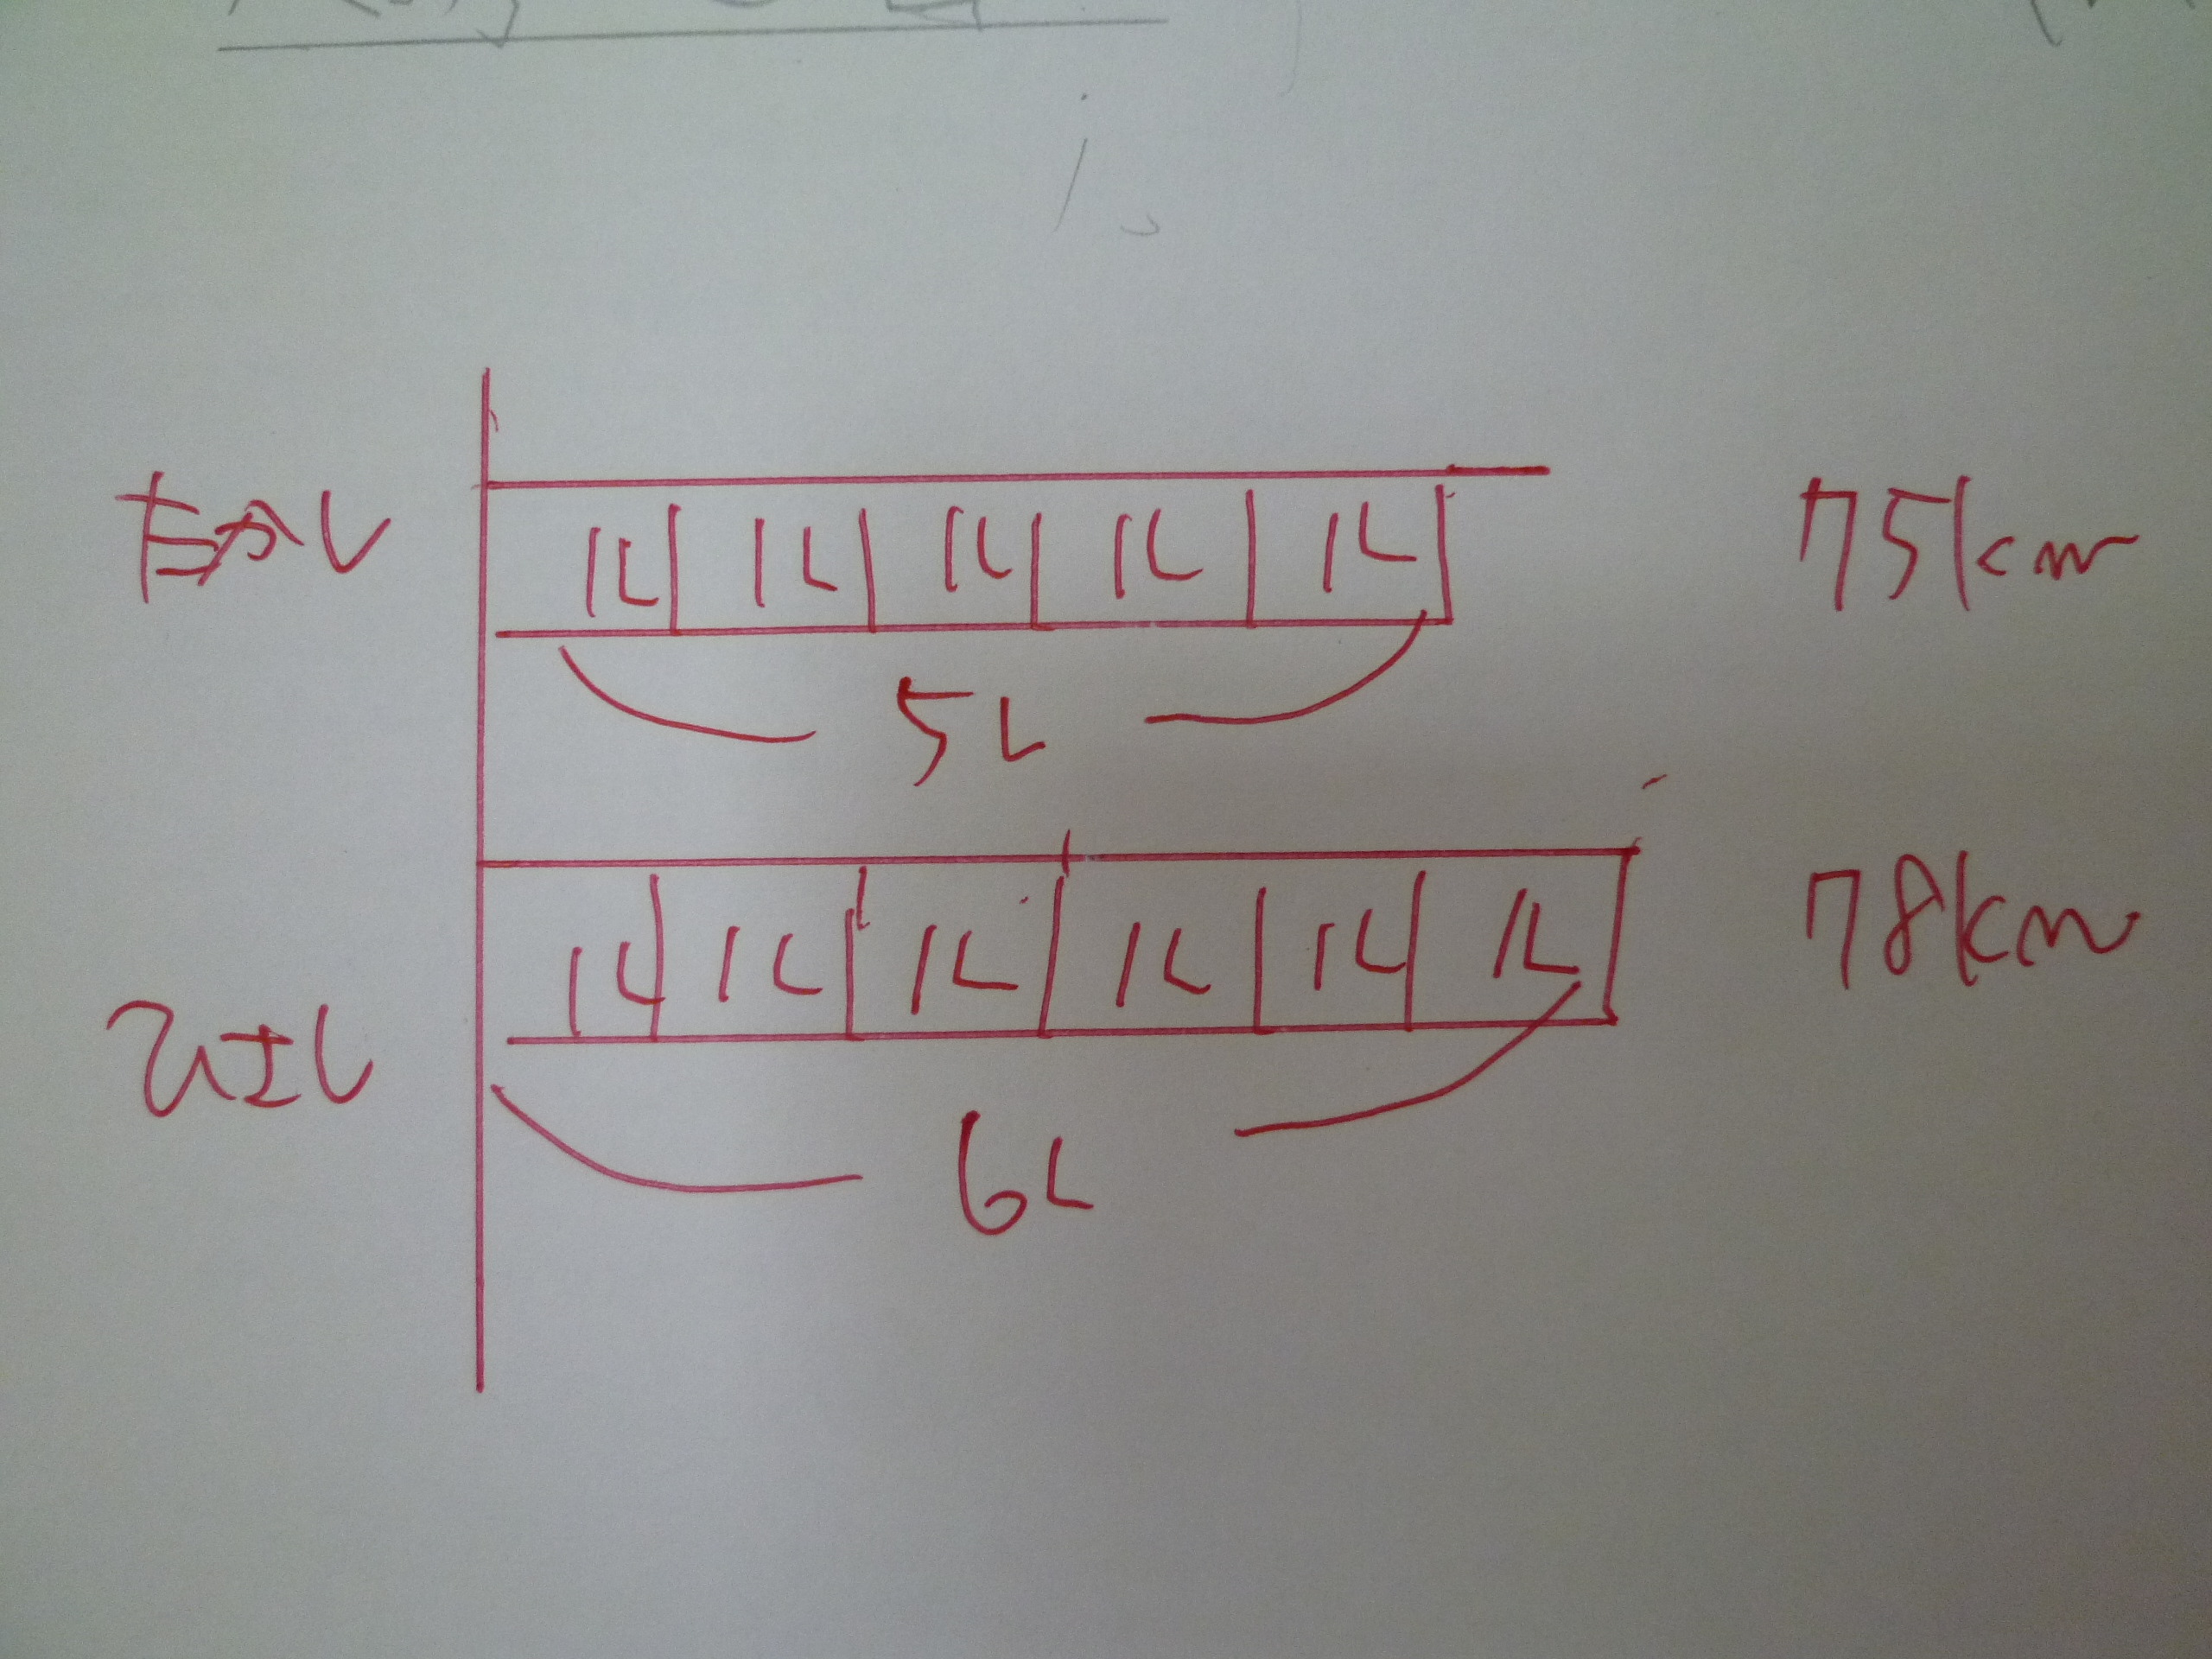 たかし 1L 1L 1L 1L 1L 75km
5L
ひさし 1L 1L 1L 1L 1L 1L 78km
6L